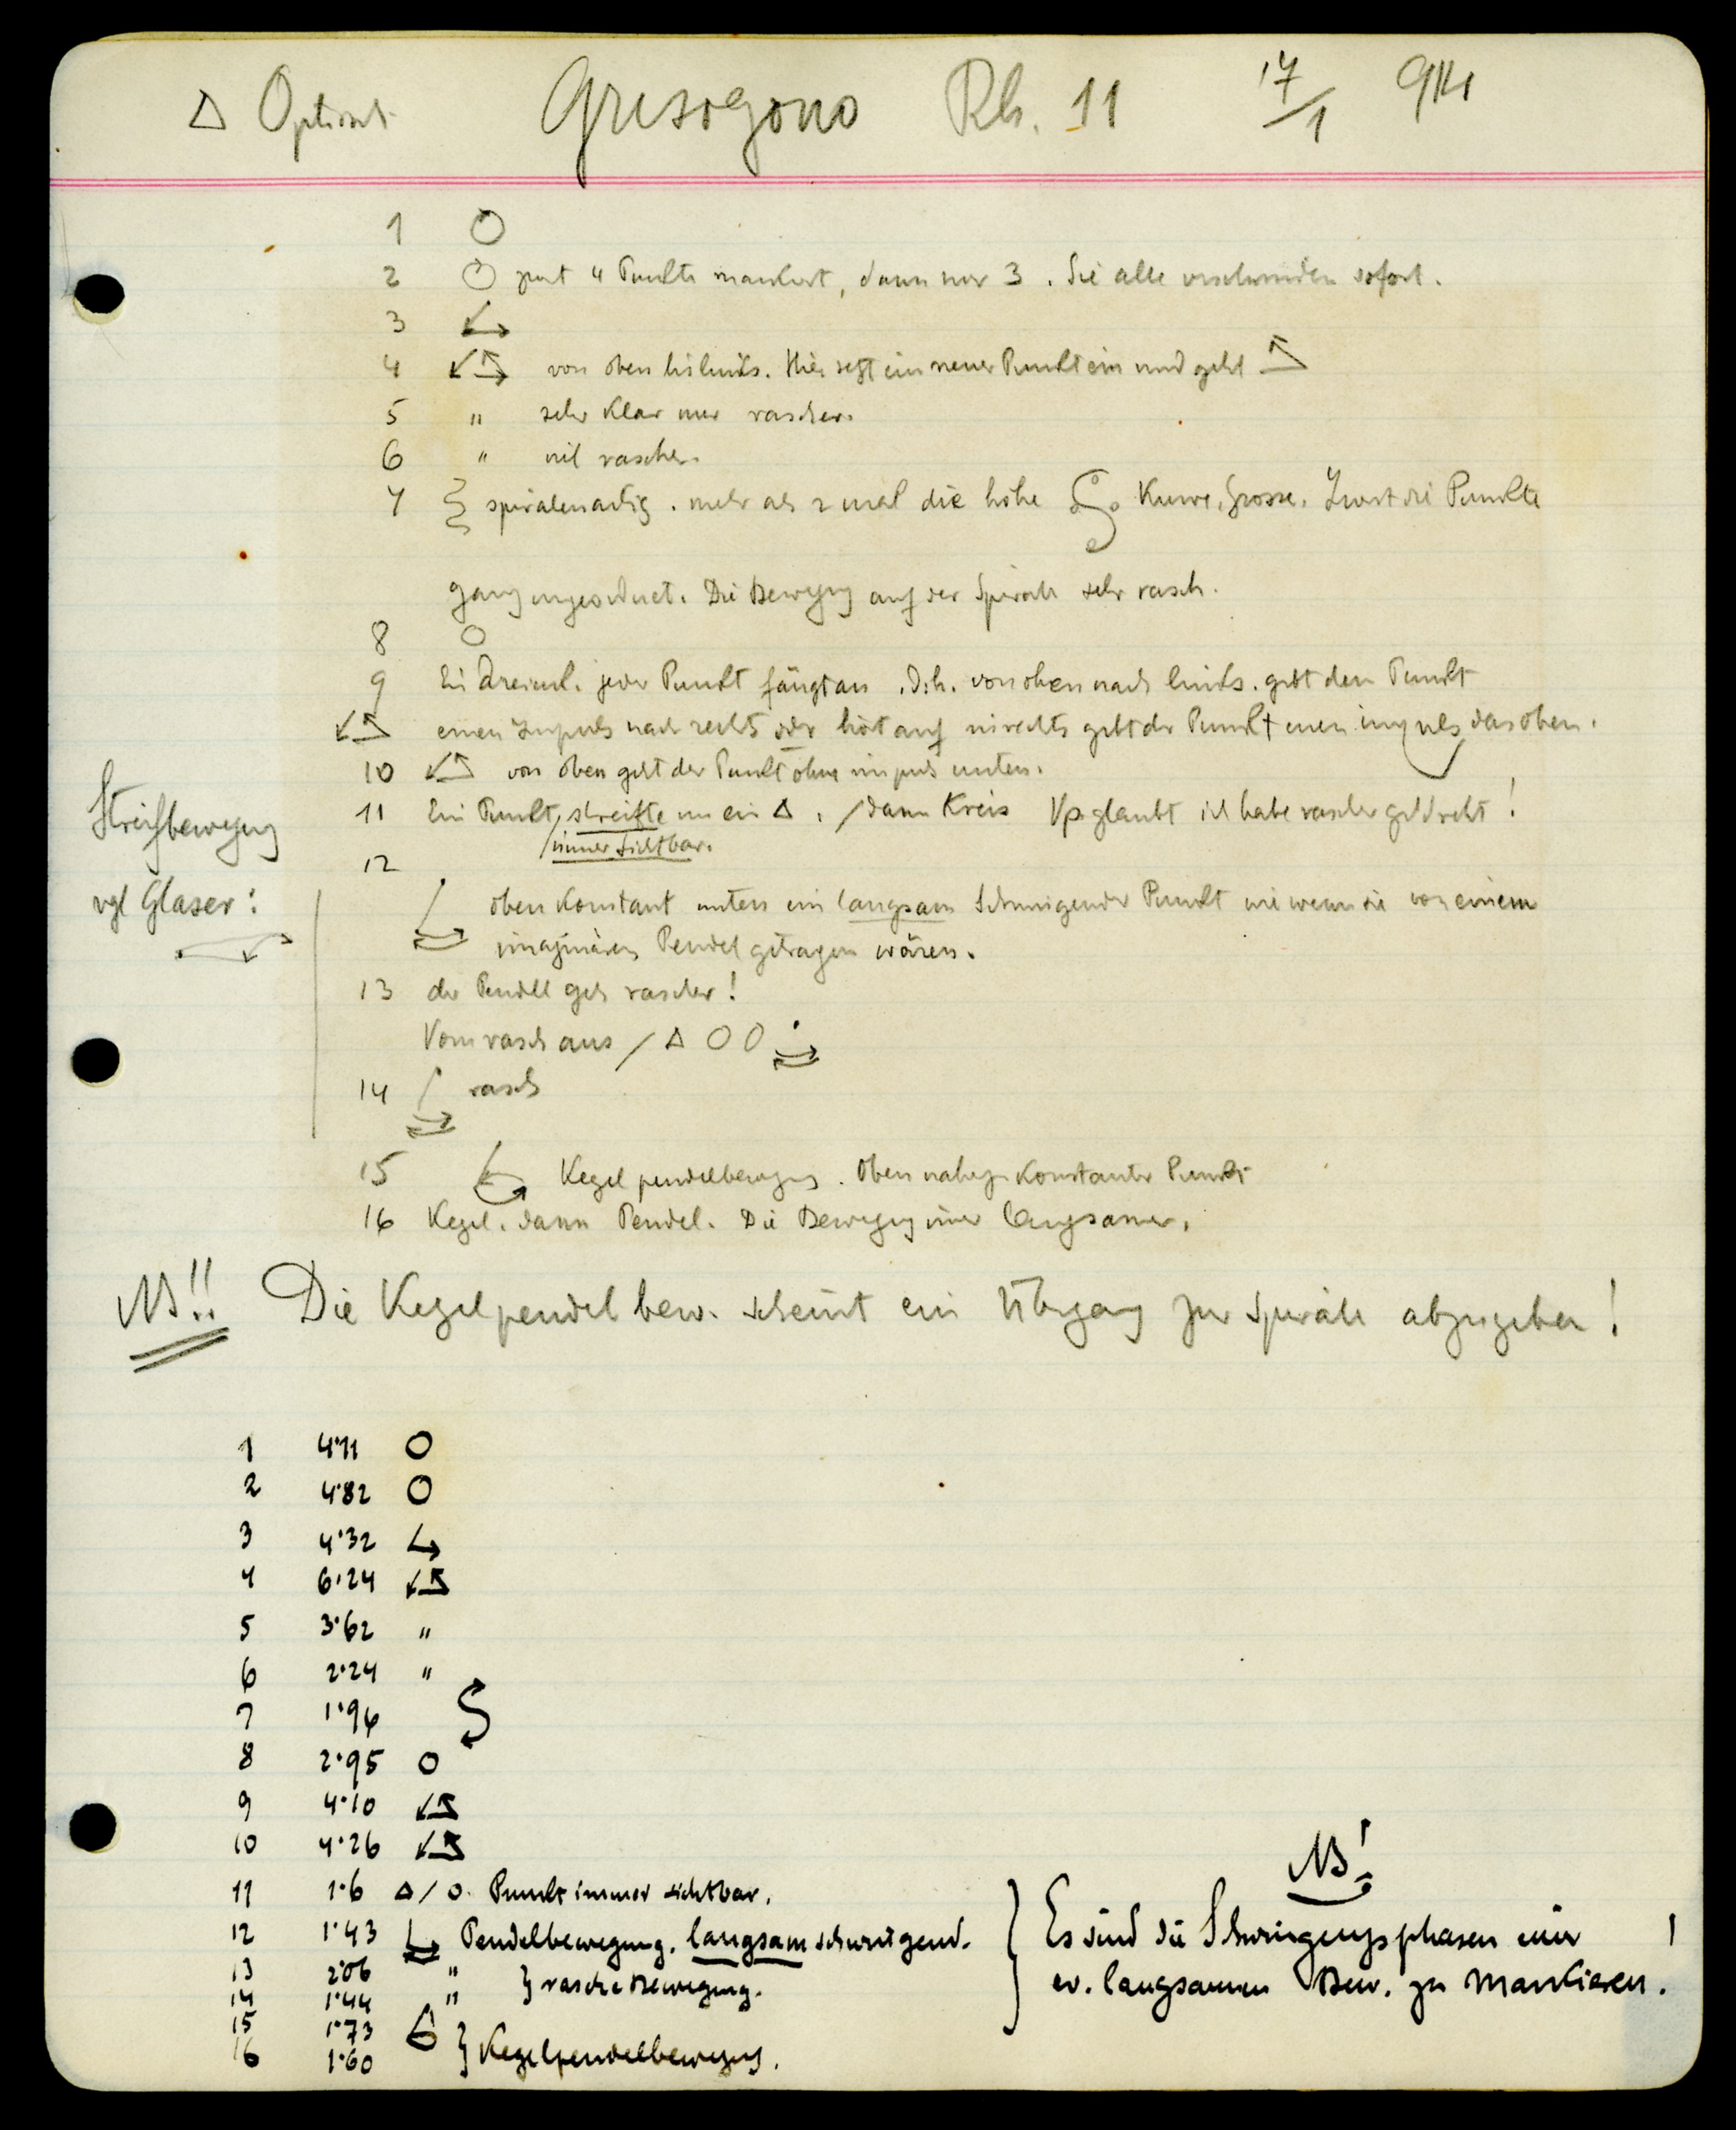 △ Optisch Grisogono Rh. 11 17/1 914
1 ○
2 ○ zuerst 4 Punkte markiert, dann nur 3. Sie alle verschwinden sofort.
3 ↙→
4 ↙↖→ von oben bis links. Hier setzt ein neuer Punkt ein und geht
5 " sehr klar nur rascher.
6 " viel rascher.
7 spiralenartig. mehr als 2 mal die höhe Kurve, grosse. Zuerst die Punkte
ganz ungeordnet. Die Bewegung auf der Spirale sehr rasch.
8 ○
9 Ein Dreieck. jeder Punkt fängt an. d.h. von oben nach links. gibt dem Punkt
einen Impuls nach rechts oder hört auf rechts gibt der Punkt einen impuls das oben.
10 von oben geht der Punkt ohne impuls unten.
11 Ein Punkt, streifte um ein △. / dann Kreis Vp glaubt ich habe rascher gedreht!
/immer sichtbar.
Streifbewegung
12
vgl Glaser:
oben Konstant unten ein langsam schwingender Punkt wie wenn sie von einem
imaginären Pendel getragen wären.
13 der Pendel geh rascher!
Vom rasch aus / △ ○ ○
14 rasch
15 Kegelpendelbewegung. Oben nahezu Konstanter Punkt
16 Kegel. dann Pendel. Die Bewegung immer langsamer.
NB!! Die Kegelpendelbew. scheint ein Übergang zur Spirale abzugeben!
1 4·11 ○
2 4·82 ○
3 4·32
4 6·24
5 3·62 "
6 2·24 "
7 1·96
8 2·95 ○
9 4·10
10 4·26
11 1·6 △/○. Punkt immer sichtbar.
12 1·43 Pendelbewegung. langsam schwingend.
13 2·06 " } rasche Bewegung.
14 1·44 "
15 1·73
16 1·60 } Kegelpendelbewegung.
NB!
Es sind die Schwingungsphasen einer !
ev. langsamen Bew. zu markieren.